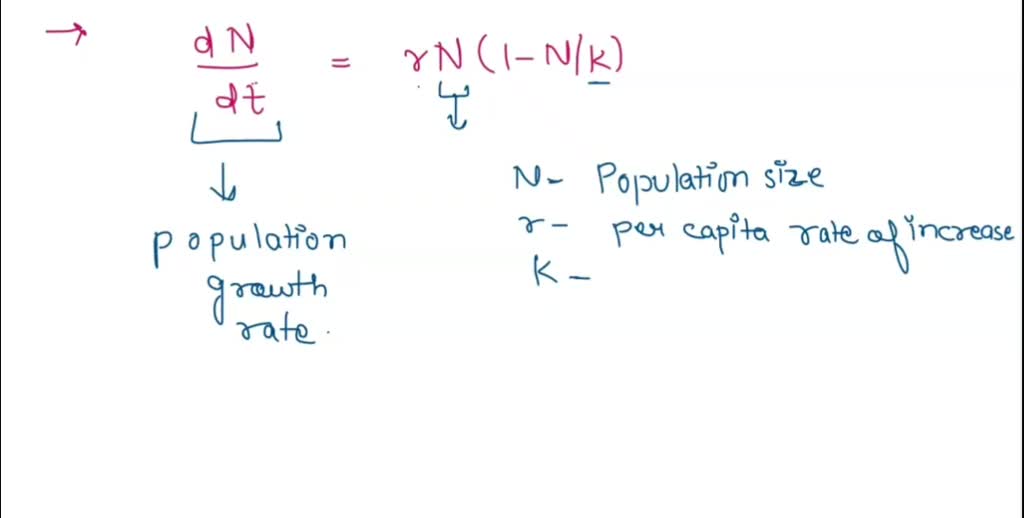 → dN/dt = rN(1-N/k)
N- Population size
r- per capita rate of increase
K-
population
growth
rate.